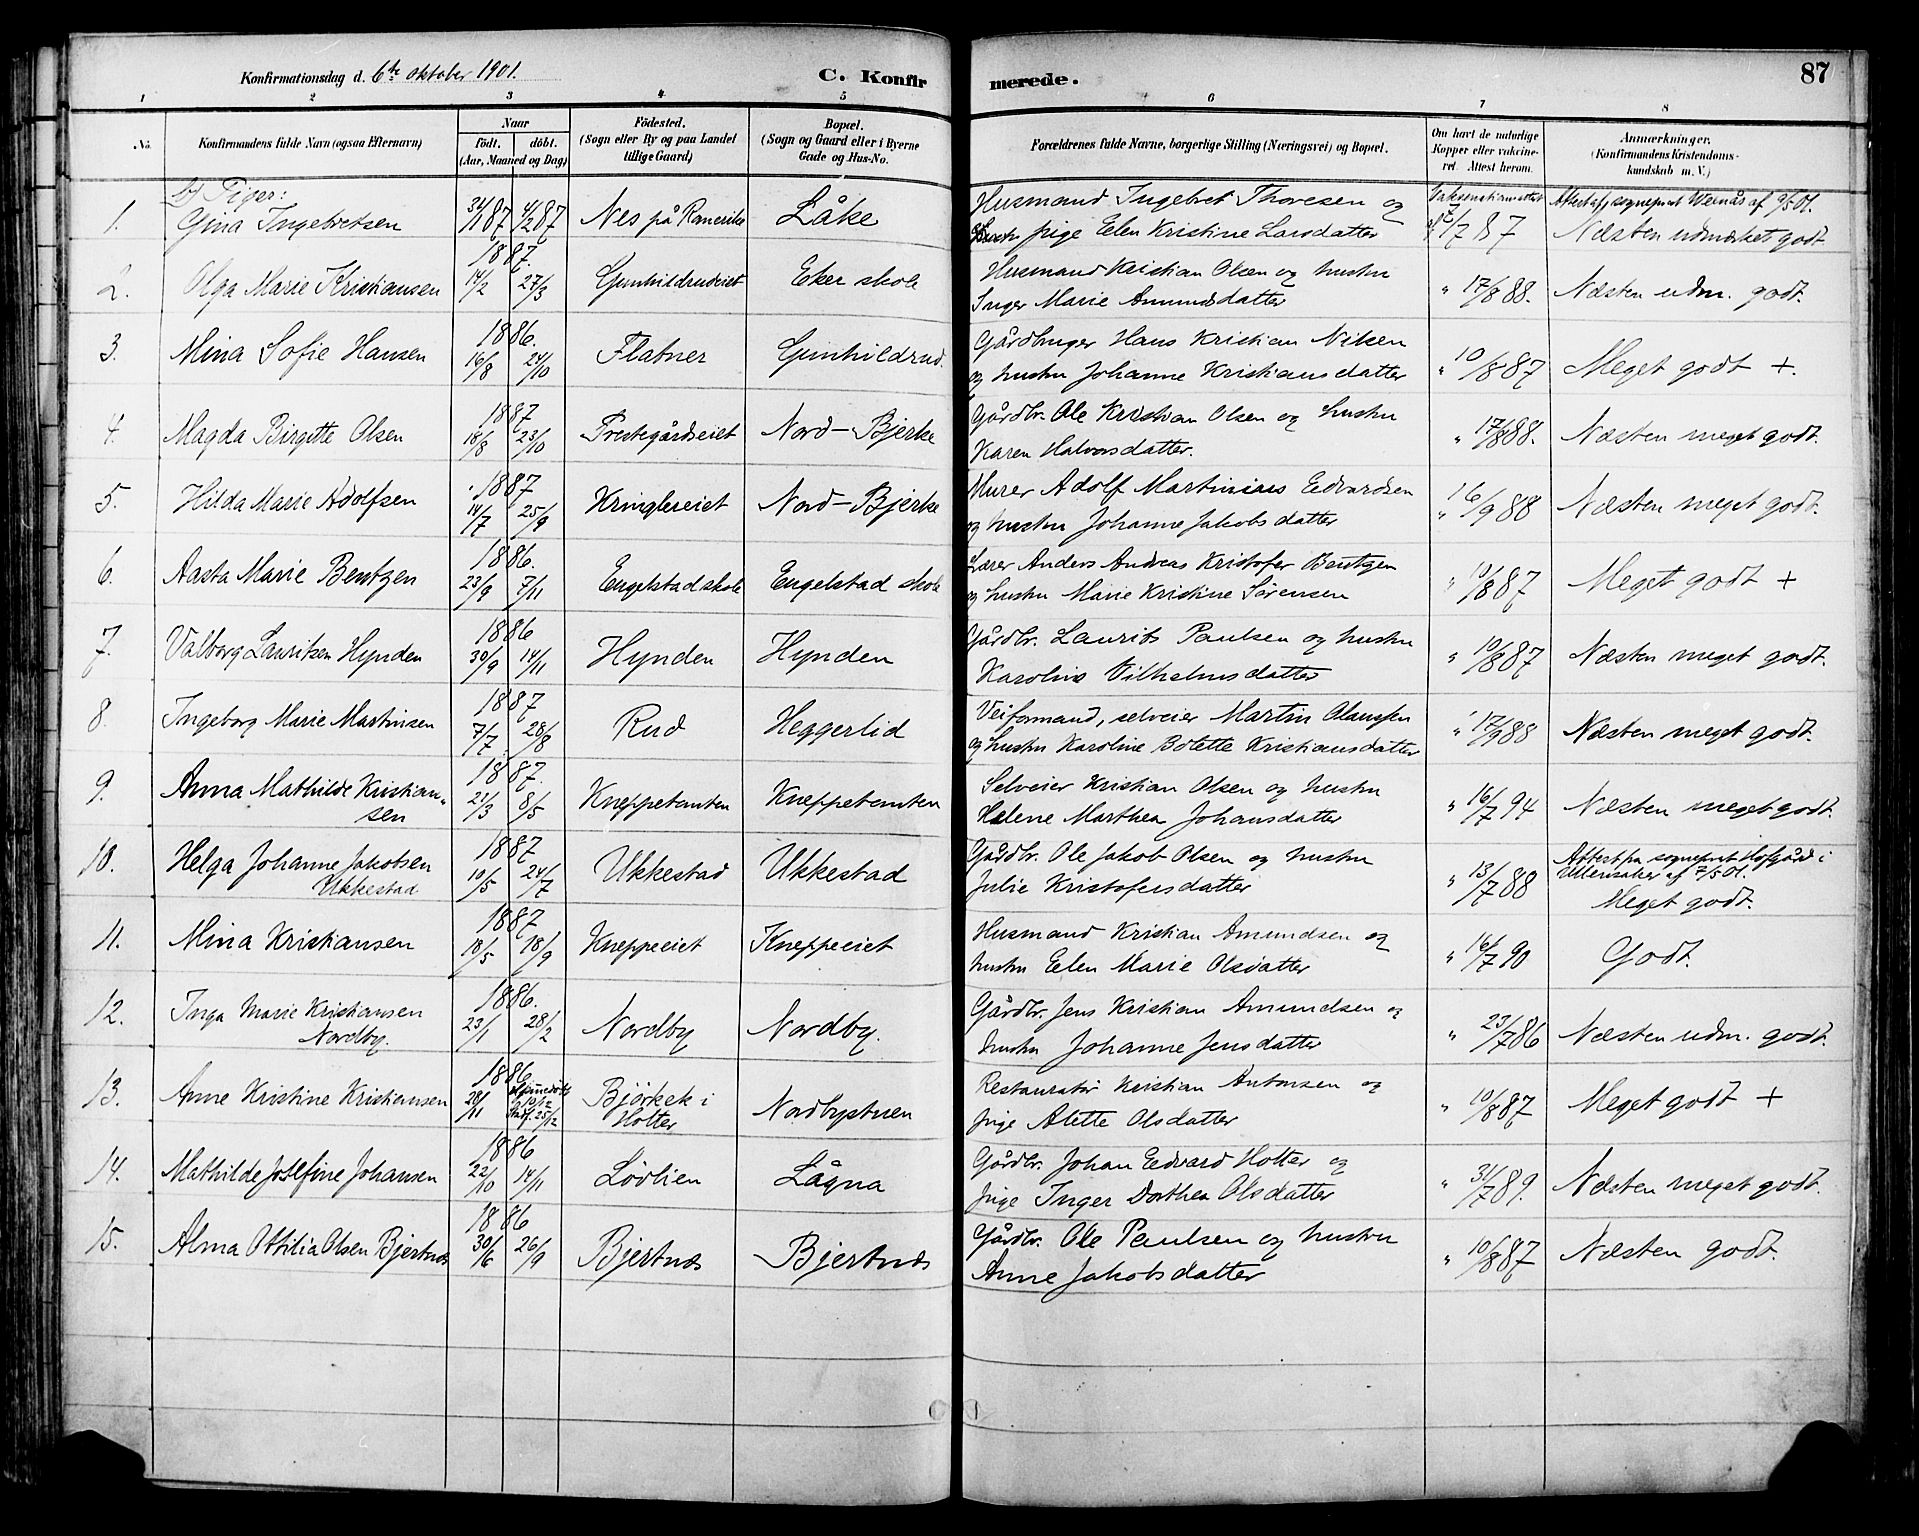 Konfirmationsdag d. 6te oktober 1901.
C. Konfirmerede.
87
1 2 3 4 5 6 7 8
No.
Konfirmandens fulde Navn (ogsaa Efternavn)
Naar
födt. döbt.
(Aar, Maaned og Dag)
Födested.
(Sogn eller By og paa Landet
tillige Gaard)
Bopæl.
(Sogn og Gaard eller i Byerne
Gade og Hus-No.
Forældrenes fulde Navne, borgerlige Stilling (Næringsvei) og Bopæl.
Om havt de naturlige
Kopper eller vakcine-
ret. Attest herom.
Anmærkninger.
(Konfirmandens Kristendoms-
kundskab m. V.)
b) Piger:
1. Gina Ingebretsen 31/1 87 4/2 87 Nes på Romerike Låke
Husmand Ingebret Thoresen og
pige Elen Kristine Larsdatter
87
Attest fra sogneprest Wernås af 9/5 01.
Næsten udmerket godt
2. Olga Marie Kristiansen 1887. 14/2 27/3 Gunhildrudeiet Eker skole
Husmand Kristian Olsen og hustru
Inger Marie Amundsdatter
" 17/8 88. Næsten udm. godt.
3. Mina Sofie Hansen 1886. 16/8 24/10 Flatner Gunhildrud.
Gårdbruger Hans Kristian Nilsen
og hustru Johanne Kristiansdatter
" 10/8 87 Meget godt +.
4. Magda Birgitte Olsen 1887 18/8 23/10 Prestegårdseiet Nord-Bjerke
Gårdbr. Ole Kristian Olsen og hustru
Karen Halvorsdatter.
" 17/8 88. Næsten meget godt.
5. Hilda Marie Adolfsen 1887 14/7 25/9 Kringlereiet Nord-Bjerke
Murer Adolf Martinius Edvardsen
og hustru Johanne Jakobsdatter
" 16/9 88 Næsten meget godt.
6. Aasta Marie Bentzen 1886. 23/9 7/11 Engelstad skole Engelstad skole
Lærer Anders Andreas Kristofer Bentzen
og hustru Marie Kristine Sørensen
" 10/8 87 Meget godt +
7. Valborg Lauritsen Hynden 1886 30/9 14/11 Hynden Hynden
Gårdbr. Laurits Paulsen og hustru
Karoline Vilhelmsdatter
" 10/8 87 Næsten meget godt.
8. Ingeborg Marie Martinsen 1887 7/7. 28/8 Rud Heggerlid
Veiformand, selveier Martin Olaussen
og hustru Karoline Bolette Kristiansdatter
" 17/9 88 Næsten meget godt.
9. Anna Mathilde Kristian-
sen 1887. 21/3 8/5 Kneppetomten Kneppetomten
Selveier Kristian Olsen og hustru
Helene Marthea Johansdatter
" 16/7 94 Næsten meget godt.
10. Helga Johanne Jakobsen
Ukkestad 1887 10/5 24/7 Ukkestad Ukkestad
Gårdbr. Ole Jakob Olsen og hustru
Julie Kristofersdatter
" 13/7 88
Attest fra sogneprest Hofgård i
Ullensaker af 7/5 01.
Meget godt.
11. Mina Kristiansen 1887 18/5 18/9 Kneppeeiet Kneppeeiet
Husmand Kristian Amundsen og
hustru Elen Marie Olsdatter
" 16/7 90 Godt.
12. Inga Marie Kristiansen
Nordby. 1886. 23/1 28/2 Nordby Nordby.
Gårdbr. Jens Kristian Amundsen og
hustru Johanne Jensdatter
" 23/7 86 Næsten udm. godt.
13. Anne Kristine Kristiansen 1886 28/11 hjemmedøbt 12/12 stadf. 25/12 Bjørkek i
Holter Nordbystuen
Restauratør Kristian Antonsen og
pige Alette Olsdatter
" 10/8 87 Meget godt +
14. Mathilde Josefine Johansen 1886 22/10 14/11 Lødlien Lågna
Gårdbr. Johan Edvard Holter og
pige Inger Dorthea Olsdatter
" 31/7 89. Næsten meget godt.
15. Alma Ottilia Olsen Bjertnæs 1886 30/6 26/9 Bjertnæs Bjertnæs
Gårdbr. Ole Paulsen og hustru
Anne Jakobsdatter
" 10/8 87 Næsten godt.